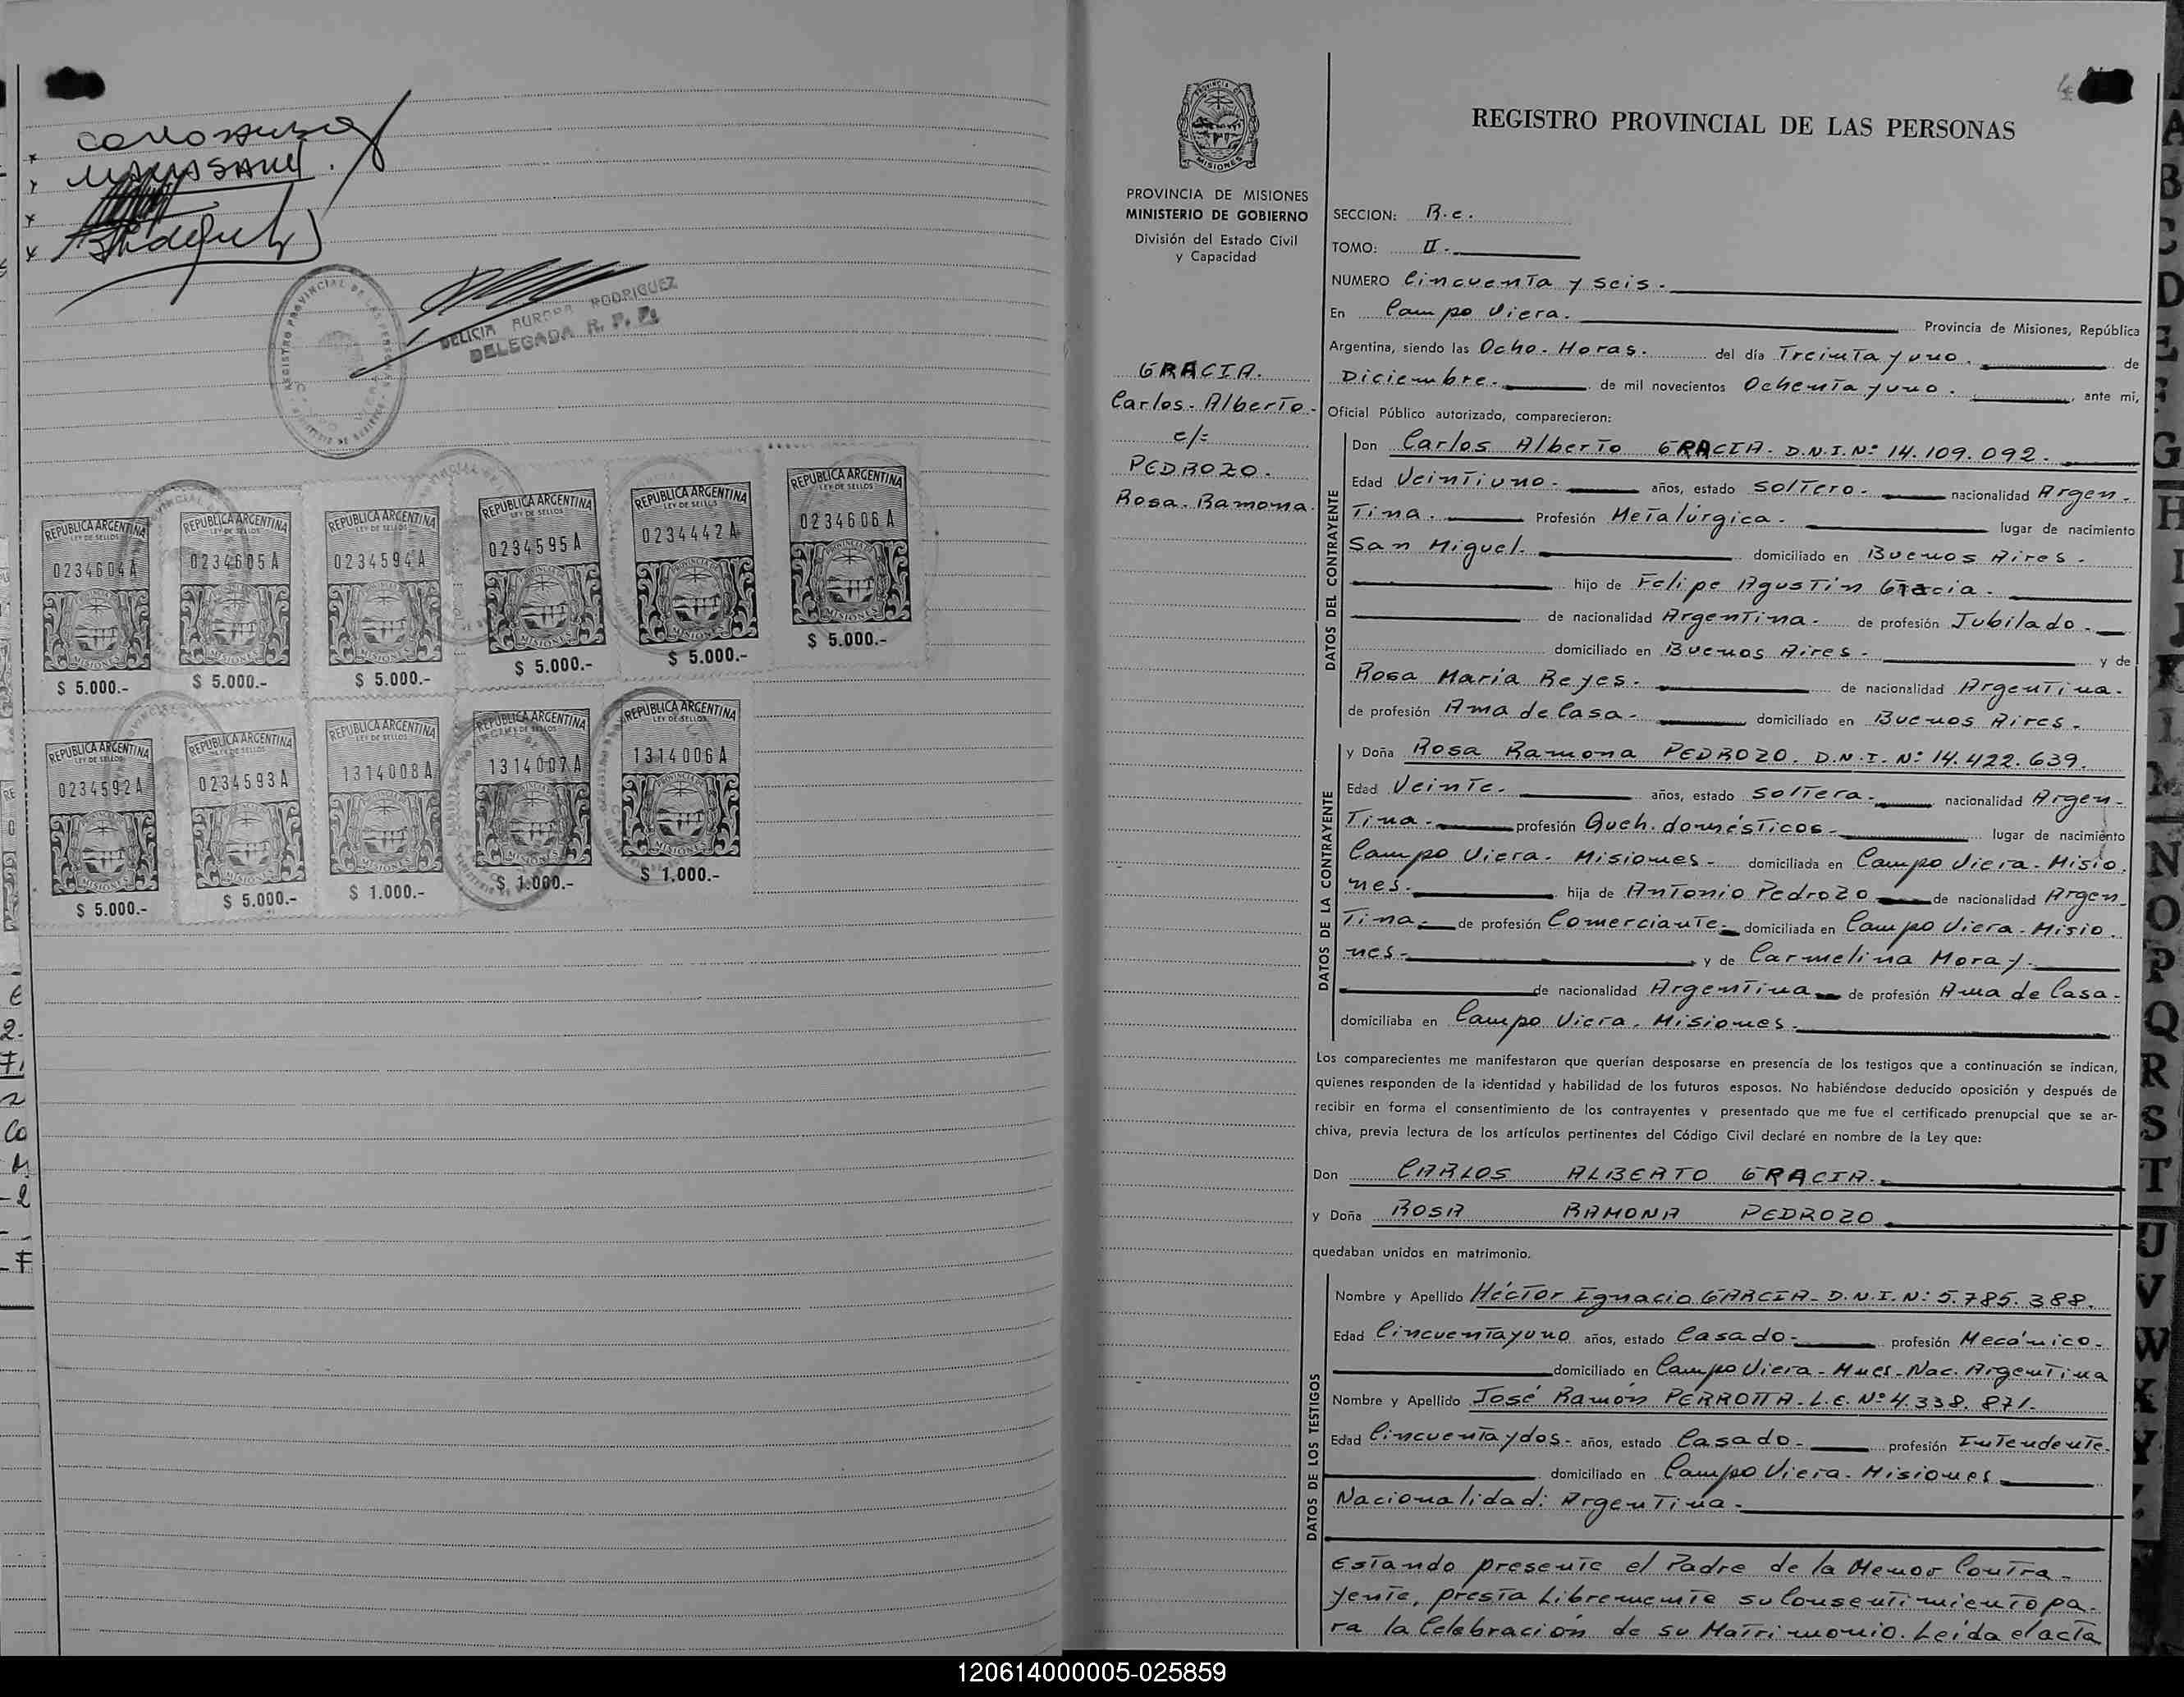 REGISTRO PROVINCIAL DE LAS PERSONAS
DELICIA AURORA RODRIGUEZ
DELEGADA R. P. P.
REPUBLICA ARGENTINA
LEY DE SELLOS
0234604A
$ 5.000.-
REPUBLICA ARGENTINA
LEY DE SELLOS
0234605A
$ 5.000.-
REPUBLICA ARGENTINA
LEY DE SELLOS
0234594A
$ 5.000.-
REPUBLICA ARGENTINA
LEY DE SELLOS
0234595A
$ 5.000.-
REPUBLICA ARGENTINA
LEY DE SELLOS
0234442A
$ 5.000.-
REPUBLICA ARGENTINA
LEY DE SELLOS
0234606A
$ 5.000.-
REPUBLICA ARGENTINA
LEY DE SELLOS
0234592A
$ 5.000.-
REPUBLICA ARGENTINA
LEY DE SELLOS
0234593A
$ 5.000.-
REPUBLICA ARGENTINA
LEY DE SELLOS
1314008A
$ 1.000.-
REPUBLICA ARGENTINA
LEY DE SELLOS
1314007A
$ 1.000.-
REPUBLICA ARGENTINA
LEY DE SELLOS
1314006A
$ 1.000.-
PROVINCIA DE MISIONES
MINISTERIO DE GOBIERNO
División del Estado Civil
y Capacidad
GRACIA.
Carlos-Alberto-
c/:
PEDROZO.
Rosa-Ramona.
SECCION: R.c.
TOMO: II.-
NUMERO Cincuenta y seis.-
En Campo Viera. Provincia de Misiones, República
Argentina, siendo las Ocho-Horas. del día Treinta y uno. de
Diciembre. de mil novecientos Ochenta y uno. , ante mi,
Oficial Público autorizado, comparecieron:
DATOS DEL CONTRAYENTE
Don Carlos Alberto GRACIA- D.N.I.Nº 14.109.092.
Edad Veintiuno- años, estado soltero- nacionalidad Argen-
Tina. Profesión Metalúrgica. lugar de nacimiento
San Miguel. domiciliado en Buenos Aires.
hijo de Felipe Agustín Gracia.
de nacionalidad Argentina- de profesión Jubilado.
domiciliado en Buenos Aires- y de
Rosa María Reyes. de nacionalidad Argentina-
de profesión Ama de Casa- domiciliado en Buenos Aires-
DATOS DE LA CONTRAYENTE
y Doña Rosa Ramona PEDROZO. D.N.I.Nº 14.422.639.
Edad Veinte. años, estado soltera- nacionalidad Argen-
Tina- profesión Queh. domésticos- lugar de nacimiento
Campo Viera- Misiones- domiciliada en Campo Viera-Misio.
nes. hija de Antonio Pedrozo de nacionalidad Argen-
Tina- de profesión Comerciante- domiciliada en Campo Viera-Misio.
nes- y de Carmelina Moray.
de nacionalidad Argentina de profesión Ama de Casa-
domiciliaba en Campo Viera. Misiones.
Los comparecientes me manifestaron que querían desposarse en presencia de los testigos que a continuación se indican,
quienes responden de la identidad y habilidad de los futuros esposos. No habiéndose deducido oposición y después de
recibir en forma el consentimiento de los contrayentes y presentado que me fue el certificado prenupcial que se ar-
chiva, previa lectura de los artículos pertinentes del Código Civil declaré en nombre de la Ley que:
Don CARLOS ALBERTO GRACIA.
y Doña ROSA RAMONA PEDROZO
quedaban unidos en matrimonio.
DATOS DE LOS TESTIGOS
Nombre y Apellido Héctor Ignacio GARCIA- D.N.I.N: 5.785.388.
Edad Cincuentayuno años, estado Casado- profesión Mecánico-
domiciliado en Campo Viera-Mnes-Nac. Argentina
Nombre y Apellido José Ramón PERROTTA-L.E.Nº 4.338.871.
Edad Cincuentaydos- años, estado Casado- profesión Intendente.
domiciliado en Campo Viera-Misiones
Nacionalidad: Argentina-
Estando presente el Padre de la Menor Contra-
yente, presta Libremente su Consentimiento pa-
ra la Celebración de su Matrimonio. Leída el acta
120614000005-025859